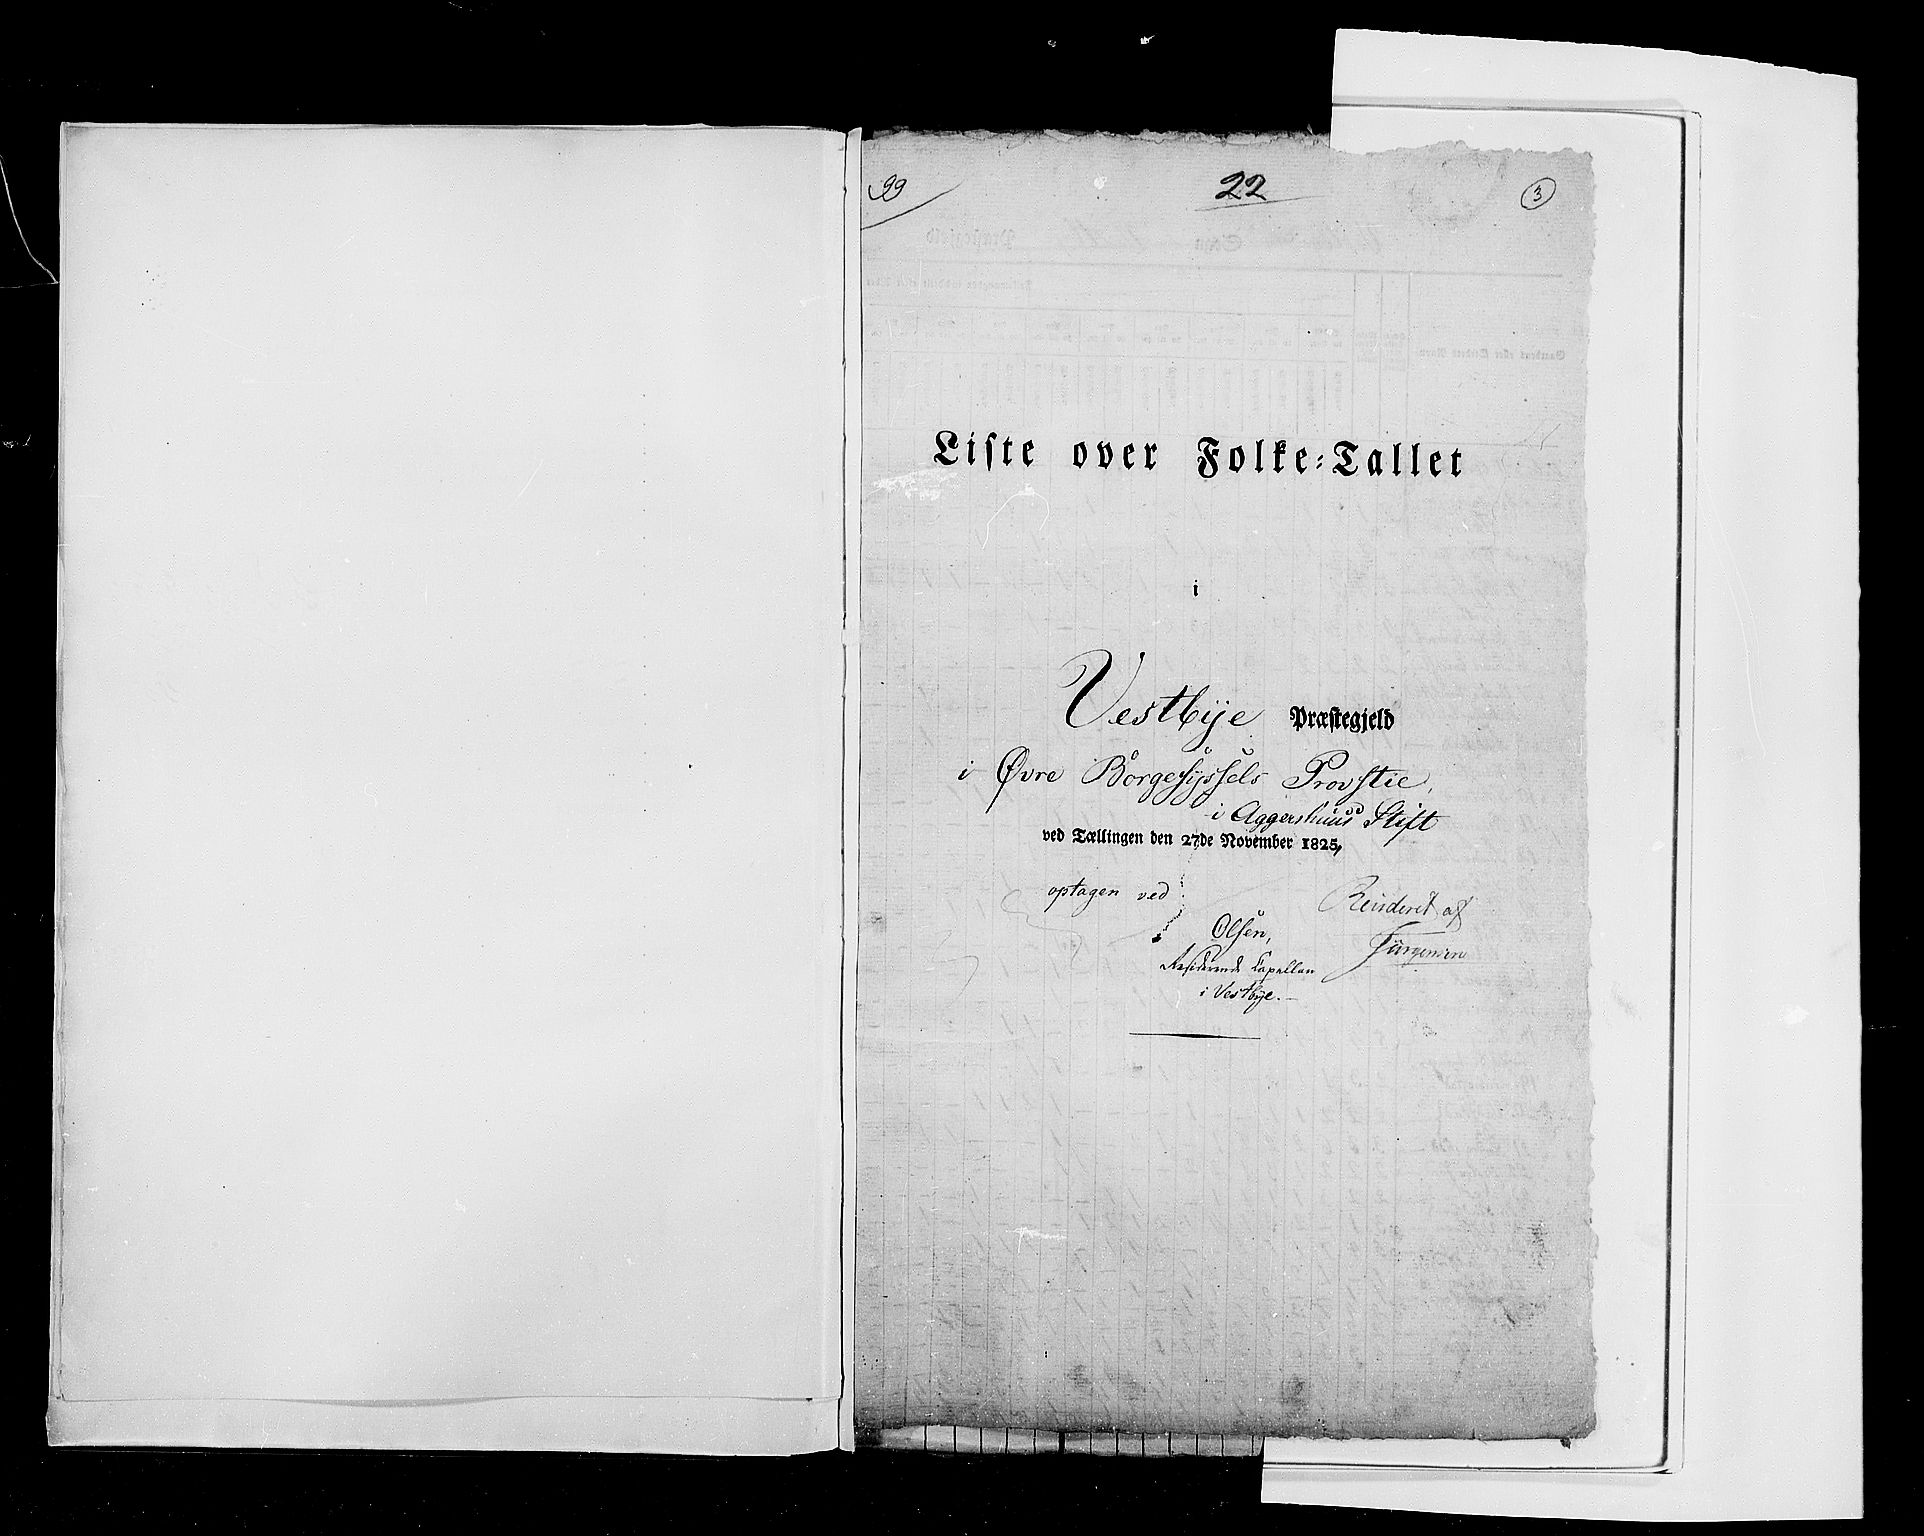 99
22
3
Liste over Folke-Tallet
i
Vestbye Præstegjeld
i Øvre Borgesyssels Provstie,
i Aggershuus Stift
ved Tællingen den 27de November 1825,
optagen ved
Olsen,
Residerende Capellan
i Vestbye.
Revideret af
Jürgensen